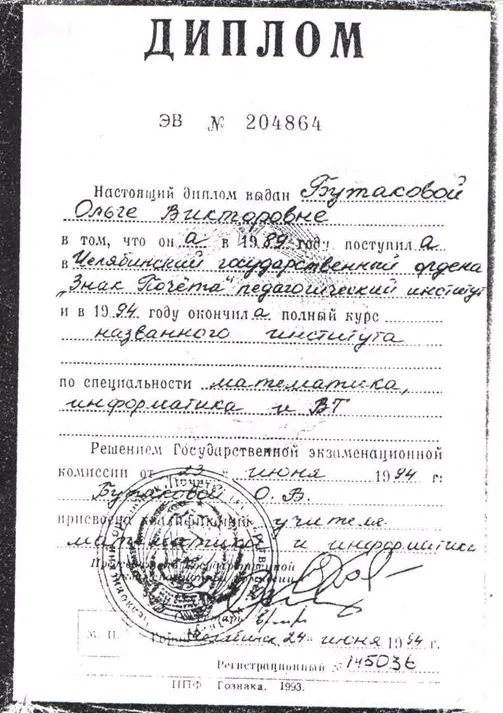 ДИПЛОМ
ЭВ № 204864
Настоящий диплом выдан Бутаковой
Ольге Викторовне
в том, что он а в 1989 году поступил а
в Челябинский государственный ордена
„Знак Почёта“ педагогический институт
и в 1994 году окончил а полный курс
названного института
по специальности математика,
информатика и ВТ
Решением Государственной экзаменационной
комиссии от 23 июня 1994 г.
Бутаковой О. В.
присвоена квалификация учителя
математики и информатики
М. П. Город Челябинск 24 июня 1994 г.
Регистрационный № 145036
ППФ Гознака. 1993.